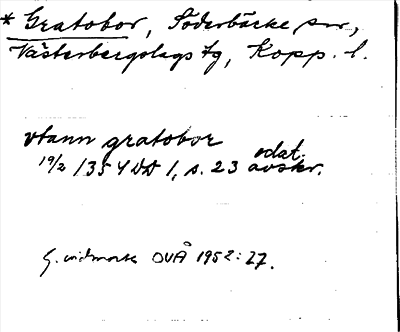 * Gratobor, Söderbärke sn,
Västerbergslags tg, Kopp. l.
vtann gratobor
19/2 1354 DD 1, s. 23 odat. avskr.
G. Widmark OUÅ 1952:27.